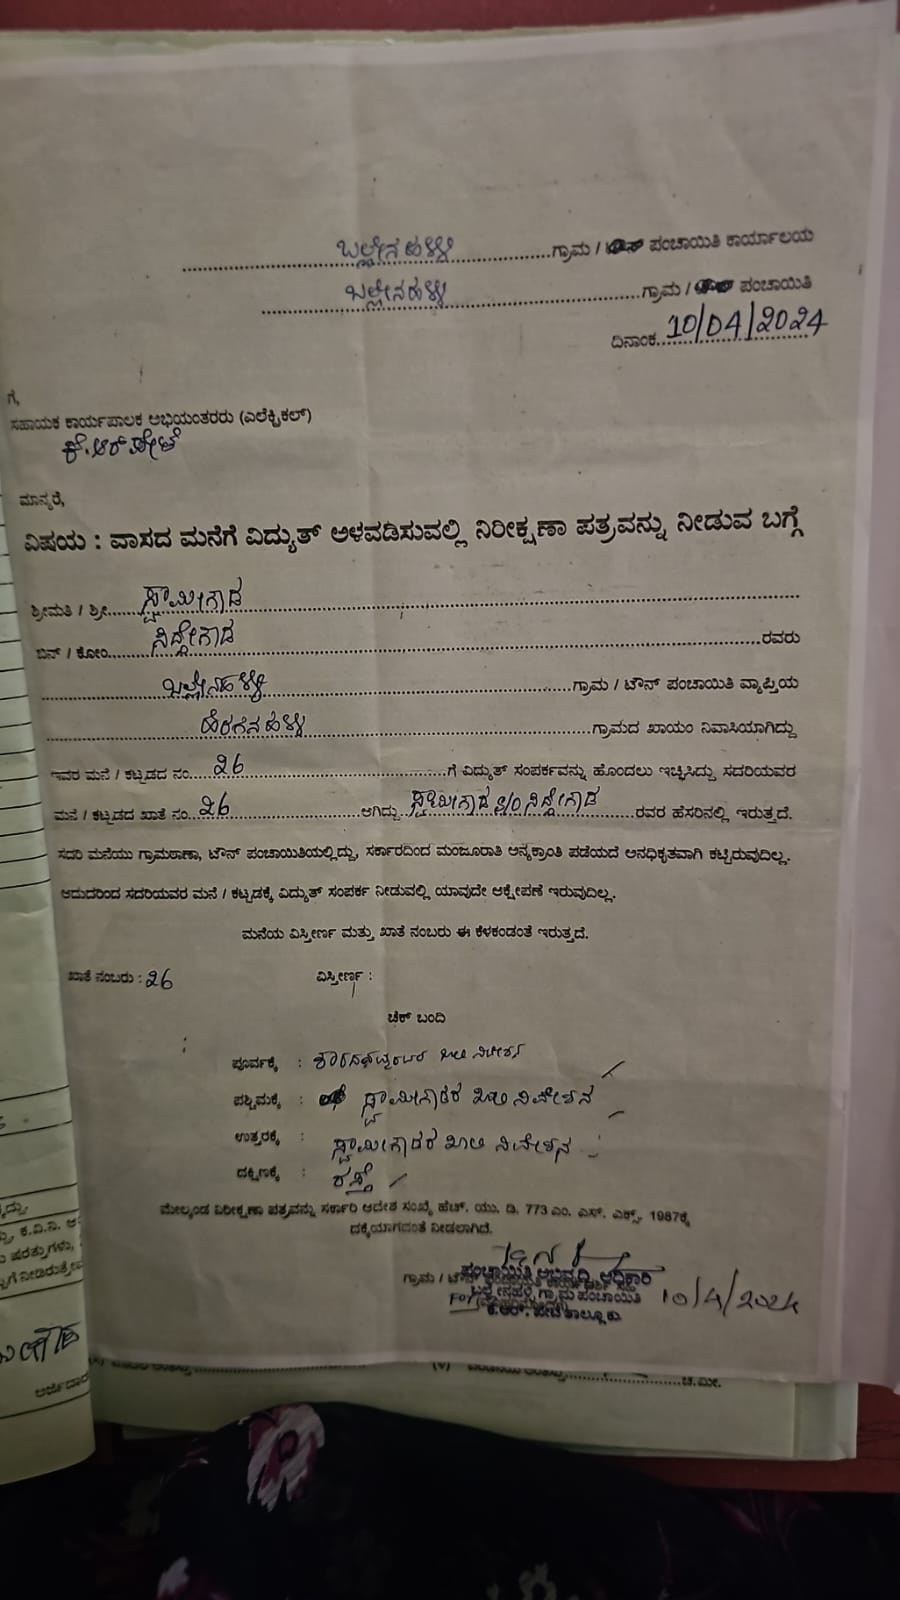 ಬಲ್ಲೇನಹಳ್ಳಿ ಗ್ರಾಮ / ಪಂಚಾಯಿತಿ ಕಾರ್ಯಾಲಯ
ಬಲ್ಲೇನಹಳ್ಳಿ ಗ್ರಾಮ / ಪಂಚಾಯಿತಿ
ದಿನಾಂಕ 10/04/2024
ಗೆ,
ಸಹಾಯಕ ಕಾರ್ಯಪಾಲಕ ಅಭಿಯಂತರರು (ಎಲೆಕ್ಟ್ರಿಕಲ್)
ಕೆ.ಆರ್ ಪೇಟೆ
ಮಾನ್ಯರೆ,
ವಿಷಯ : ವಾಸದ ಮನೆಗೆ ವಿದ್ಯುತ್ ಅಳವಡಿಸುವಲ್ಲಿ ನಿರೀಕ್ಷಣಾ ಪತ್ರವನ್ನು ನೀಡುವ ಬಗ್ಗೆ
ಶ್ರೀಮತಿ / ಶ್ರೀ ಸ್ವಾಮೀಗೌಡ
ಬಿನ್ / ಕೋಂ ಸಿದ್ದೇಗೌಡ ರವರು
ಬಲ್ಲೇನಹಳ್ಳಿ ಗ್ರಾಮ / ಟೌನ್ ಪಂಚಾಯಿತಿ ವ್ಯಾಪ್ತಿಯ
ಹೆರಗನಹಳ್ಳಿ ಗ್ರಾಮದ ಖಾಯಂ ನಿವಾಸಿಯಾಗಿದ್ದು
ಇವರ ಮನೆ / ಕಟ್ಟಡದ ನಂ. 26 ಗೆ ವಿದ್ಯುತ್ ಸಂಪರ್ಕವನ್ನು ಹೊಂದಲು ಇಚ್ಛಿಸಿದ್ದು ಸದರಿಯವರ
ಮನೆ / ಕಟ್ಟಡದ ಖಾತೆ ನಂ. 26 ಆಗಿದ್ದು ಸ್ವಾಮೀಗೌಡ S/o ಸಿದ್ದೇಗೌಡ ರವರ ಹೆಸರಿನಲ್ಲಿ ಇರುತ್ತದೆ.
ಸದರಿ ಮನೆಯು ಗ್ರಾಮಠಾಣಾ, ಟೌನ್ ಪಂಚಾಯಿತಿಯಲ್ಲಿದ್ದು, ಸರ್ಕಾರದಿಂದ ಮಂಜೂರಾತಿ ಅನ್ಯಕ್ರಾಂತಿ ಪಡೆಯದೆ ಅನಧಿಕೃತವಾಗಿ ಕಟ್ಟಿರುವುದಿಲ್ಲ.
ಆದುದರಿಂದ ಸದರಿಯವರ ಮನೆ / ಕಟ್ಟಡಕ್ಕೆ ವಿದ್ಯುತ್ ಸಂಪರ್ಕ ನೀಡುವಲ್ಲಿ ಯಾವುದೇ ಆಕ್ಷೇಪಣೆ ಇರುವುದಿಲ್ಲ.
ಮನೆಯ ವಿಸ್ತೀರ್ಣ ಮತ್ತು ಖಾತೆ ನಂಬರು ಈ ಕೆಳಕಂಡಂತೆ ಇರುತ್ತದೆ.
ಖಾತೆ ನಂಬರು : 26 ವಿಸ್ತೀರ್ಣ :
ಚೆಕ್ ಬಂದಿ
ಪೂರ್ವಕ್ಕೆ : ಖಾಲಿ ನಿವೇಶನ
ಪಶ್ಚಿಮಕ್ಕೆ : ಸ್ವಾಮೀಗೌಡರ ಖಾಲಿ ನಿವೇಶನ
ಉತ್ತರಕ್ಕೆ : ಸ್ವಾಮೀಗೌಡರ ಖಾಲಿ ನಿವೇಶನ
ದಕ್ಷಿಣಕ್ಕೆ : ರಸ್ತೆ
ಮೇಲ್ಕಂಡ ನಿರೀಕ್ಷಣಾ ಪತ್ರವನ್ನು ಸರ್ಕಾರಿ ಆದೇಶ ಸಂಖ್ಯೆ ಹೆಚ್. ಯು. ಡಿ. 773 ಎಂ. ಎಸ್. ಎಕ್ಸ್. 1987ಕ್ಕೆ
ದಕ್ಕೆಯಾಗದಂತೆ ನೀಡಲಾಗಿದೆ.
ಪಂಚಾಯಿತಿ ಅಭಿವೃದ್ಧಿ ಅಧಿಕಾರಿ
ಬಲ್ಲೇನಹಳ್ಳಿ ಗ್ರಾಮ ಪಂಚಾಯಿತಿ 10/4/2024
ಕೆ.ಆರ್. ಪೇಟೆ ತಾಲ್ಲೂಕು